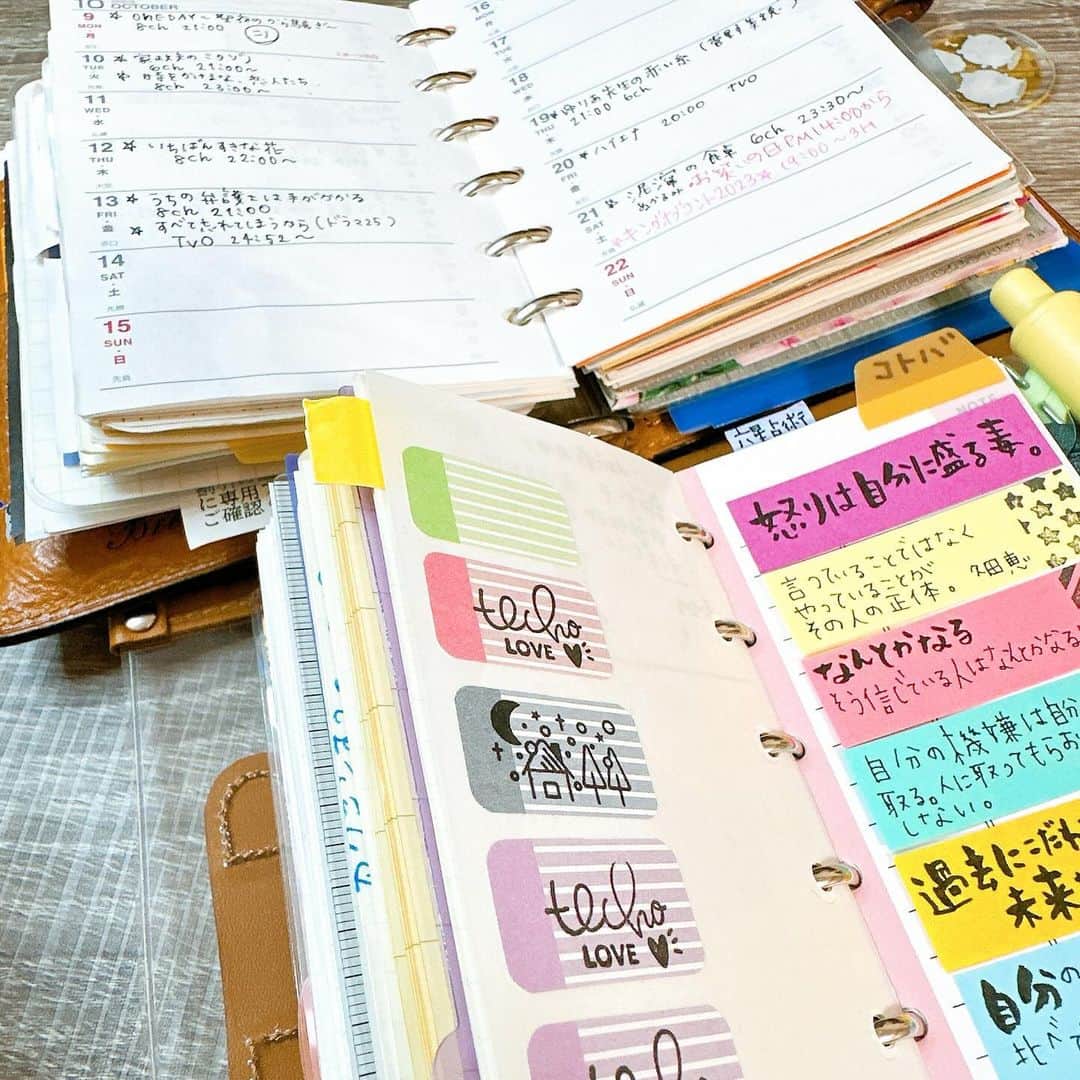 10 OCTOBER
9
MON
月
★ ONE DAY～聖夜のから騒ぎ～
8ch 21:00
10
TUE
火
★ 家政夫のミタゾノ
6ch 21:00～
8ch 23:00～
11
WED
水
12
THU
木
★ いちばんすきな花
8ch 22:00～
13
FRI
金
★ うちの弁護士は手がかかる
8ch 21:00
★ すべて忘れてしまうから(ドラマ25)
TVO 24:52～
14
SAT
土
先負
15
SUN
日
先負
16
MON
月
17
TUE
火
18
WED
水
19
THU
木
★ゆりあ先生の赤い糸 (菅野美穂)
21:00 6ch
20
FRI
金
★ハイエナ 20:00 TVO
21
SAT
土
★泥濘の食卓 6ch 23:30～
お笑いの日 PM14:00から
★キングオブコント2023★(19:00～
22
SUN
日
に専用
ご確認
六星占術
コトバ
NOTE
techo
LOVE
techo
LOVE
怒りは自分に盛る毒。
言っていることではなく
やっていることが
その人の正体。 久田恵
なんとかなる
そう信じている人はなんとかなる
自分の機嫌は自分
取る。人に取ってもらお
しない。
過去にこだわ
未来
自分の
比べて